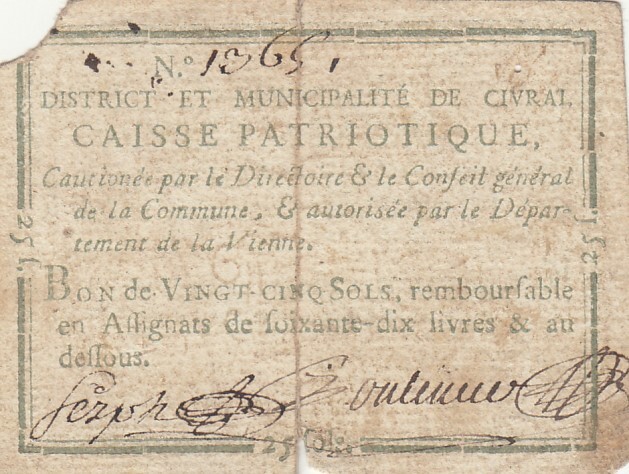 N.º 1365,
DISTRICT ET MUNICIPALITÉ DE CIVRAI,
CAISSE PATRIOTIQUE,
Cautionée par le Directoire & le Conseil général
de la Commune, & autorisée par le Dépar-
tement de la Vienne.
BON de VINGT-CINQ SOLS, remboursable
en Assignats de soixante-dix livres & au
dessous.
25 ſ.
25 ſ.
25